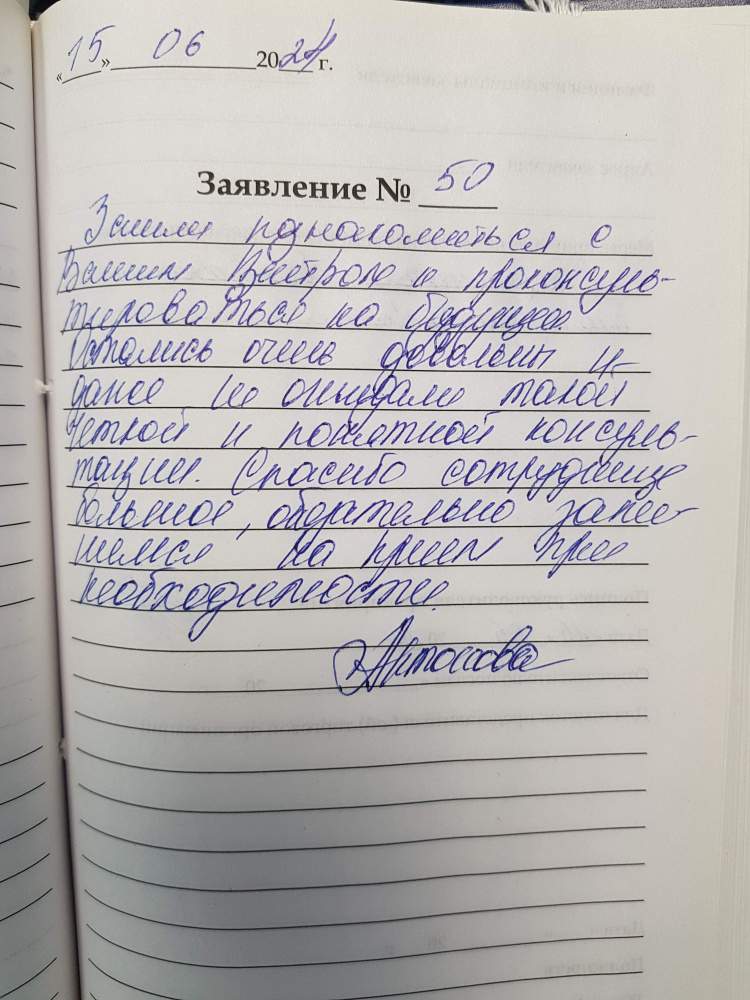 «15» 06 2024 г.
Заявление № 50
Зашли познакомиться с
Вашим Центром и проконсуль-
тироваться на будущее.
Остались очень довольны и
даже не ожидали такой
четкой и понятной консуль-
тации. Спасибо сотруднице
большое, обязательно запи-
шемся на прием при
необходимости.